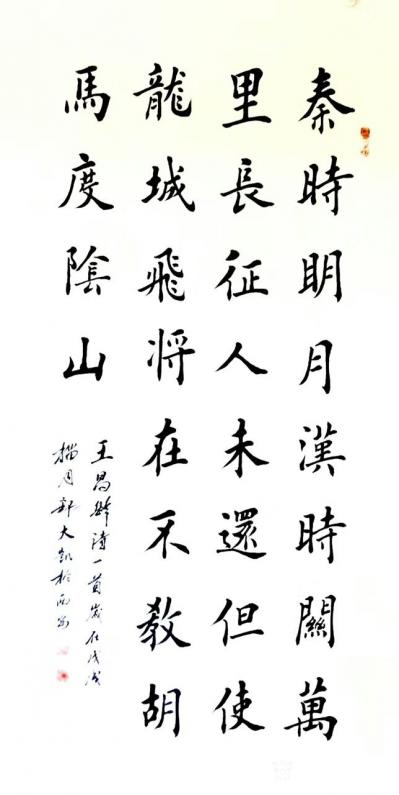 秦時明月漢時關萬
里長征人未還但使
龍城飛将在不教胡
馬度陰山
王昌齡詩一首歲在戊戌
腊月郭大凯於西安